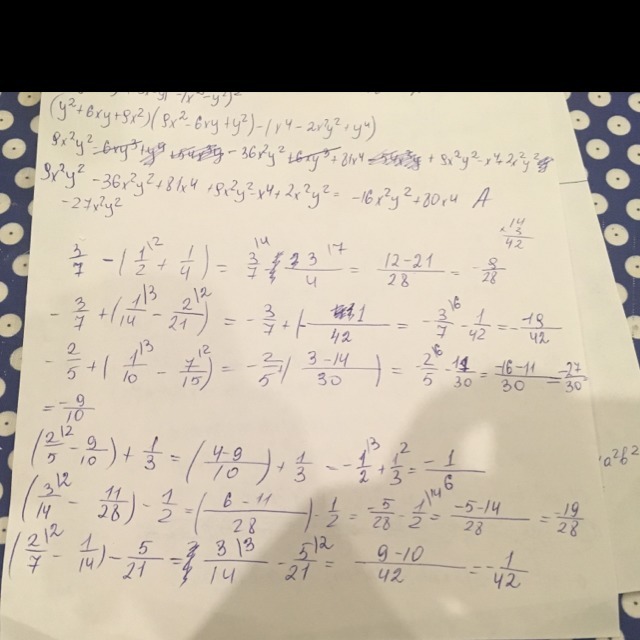 (y²+6xy+9x²)(9x²-6xy+y²)-(x4-2x²y²+y⁴)
9x²y² - 36x²y² + 81x4 + 9x²y² - x4 + 2x²y²
9x²y² - 36x²y² + 81x4 + 9x²y² - x4 + 2x²y² = -16x²y² + 80x4 A
-27x²y²
×14
3
42
3/7 - (1/2 |2 + 1/4) = 3/7 |4 - 3/4 |7 = 12-21/28 = -9/28
- 3/7 + (1/14 |3 - 2/21 |2) = - 3/7 + (- 1/42 = -3/7 |6 - 1/42 = - 19/42
- 2/5 + (1/10 |3 - 7/15 |2) = -2/5 + (3-14/30) = -2/5 |6 - 11/30 = -16-11/30 = 27/30
= -9/10
(2/5 |2 - 9/10) + 1/3 = (4-9/10) + 1/3 = -1/2 |3 + 1/3 |2 = -1/6
(3/14 |2 - 11/28) - 1/2 = (6-11/28) - 1/2 = -5/28 - 1/2 |14 = -5-14/28 = -19/28
(2/7 |2 - 1/14) - 5/21 = 3/14 |3 - 5/21 |2 = 9-10/42 = -1/42
a²b²